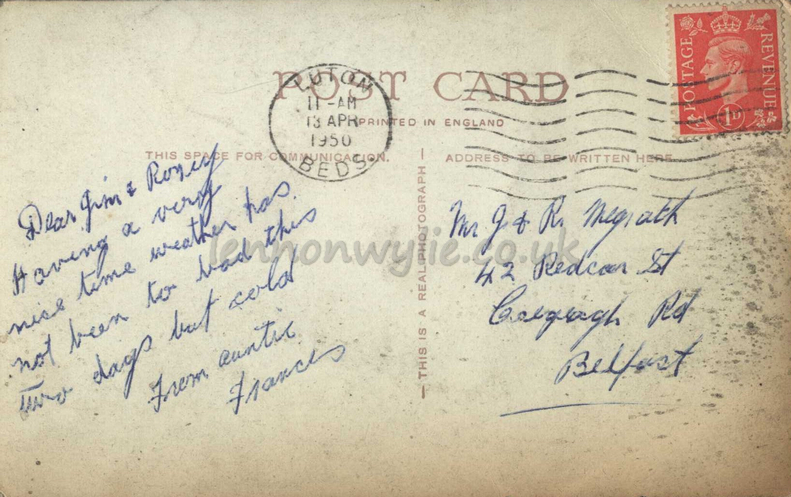 POST CARD
LUTON
11-AM
13 APR
1950
BEDS
PRINTED IN ENGLAND
THIS SPACE FOR COMMUNICATION.
ADDRESS TO BE WRITTEN HERE
POSTAGE
REVENUE
1D
Dear Jim &
Having a very
nice time weather has
not been to bad this
Two days but cold
From auntie
Frances
THIS IS A REAL PHOTOGRAPH
Mr J & R. Megrath
42 Redcar St
Rd
Belfast
lennonwylie.co.uk